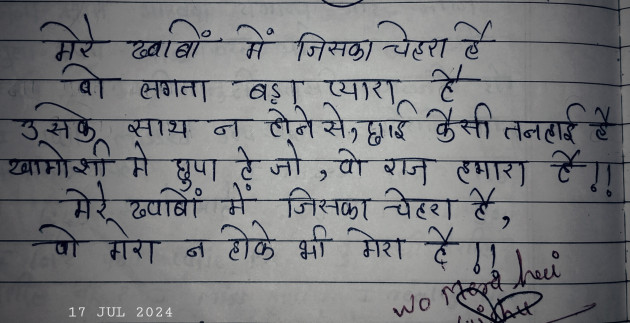 मेरे ख्वाबों में जिसका चेहरा है
वो लगता बड़ा प्यारा है
उसके साथ न होने से, छाई कैसी तनहाई है
खामोशी मे छुपा है जो, वो राज हमारा है !!
मेरे ख्वाबों में जिसका चेहरा है,
वो मेरा न होके भी मेरा है !!
wo hai
17 JUL 2024